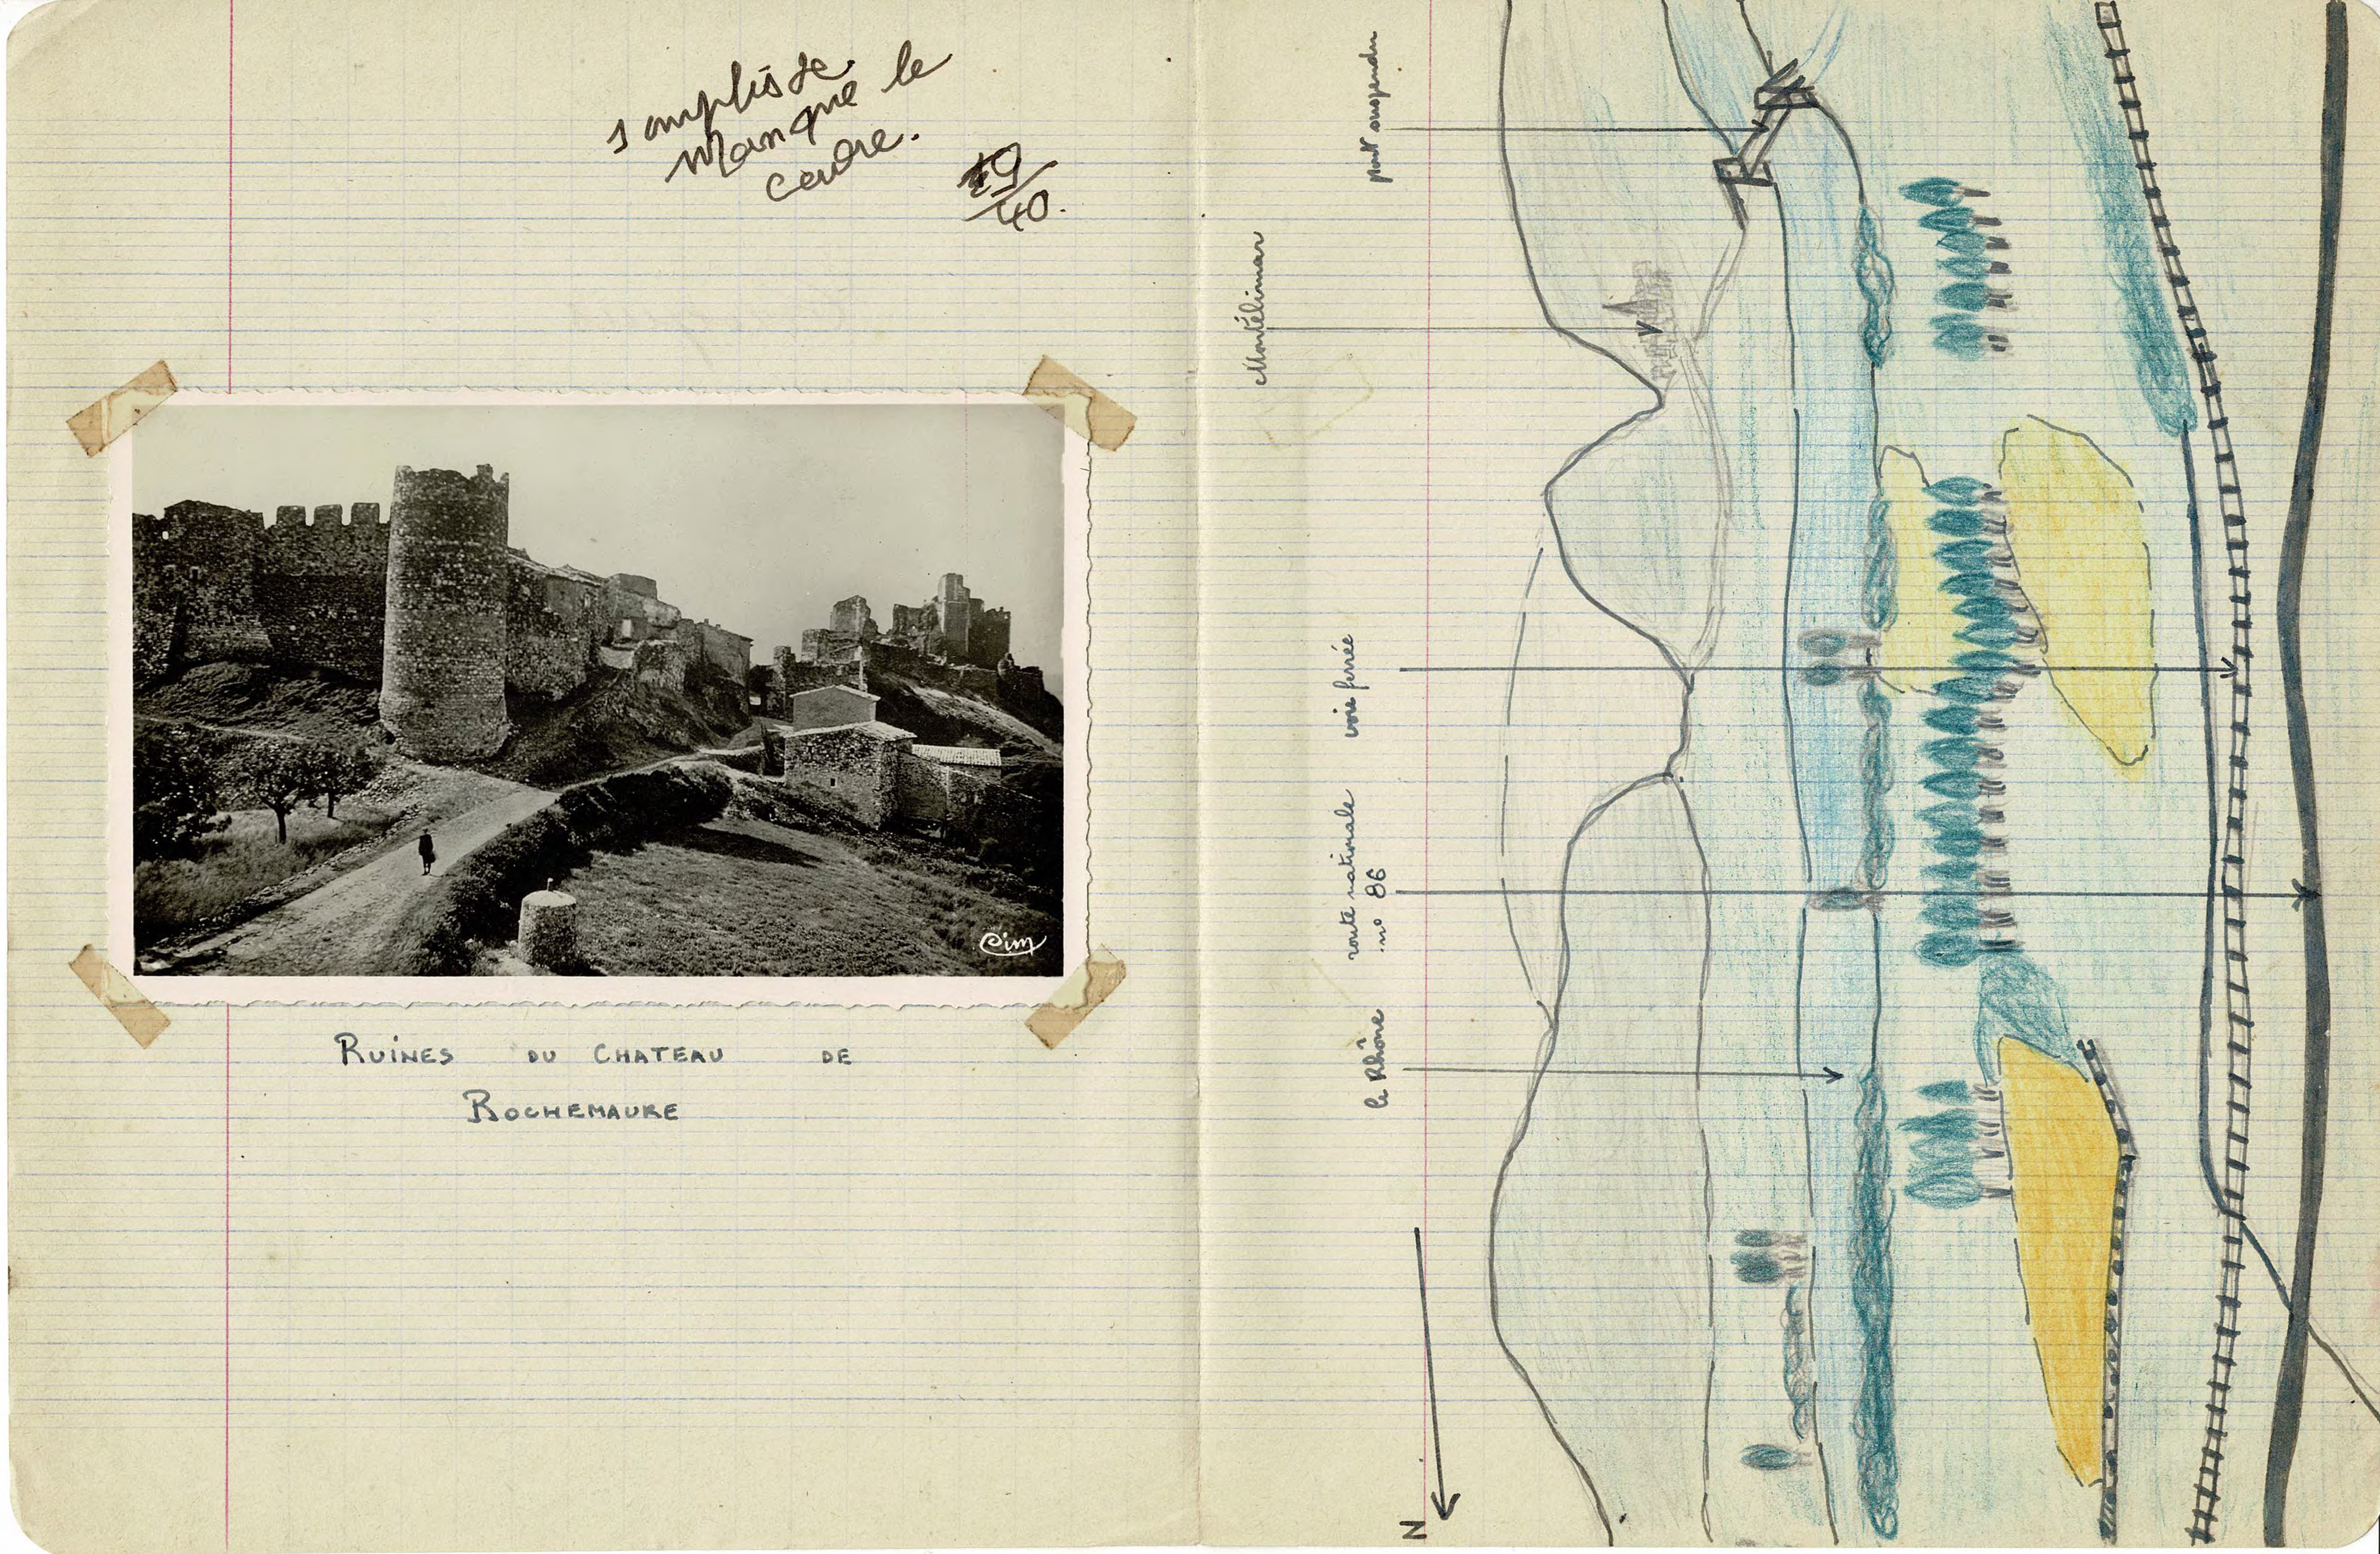 simpliste.
Manque le
cadre.
19/40.
Cim
RUINES DU CHATEAU DE
ROCHEMAURE
pont suspendu
Montélimar
voie ferrée
route nationale
no 86
le Rhône
N